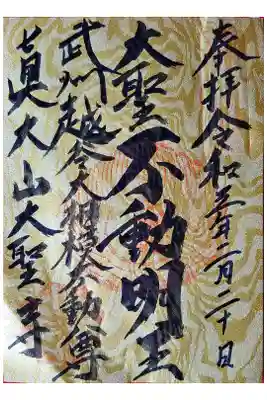 奉拝令和年二月二十日
大聖不動明王
武州越谷大相模不動尊
真大山大聖寺